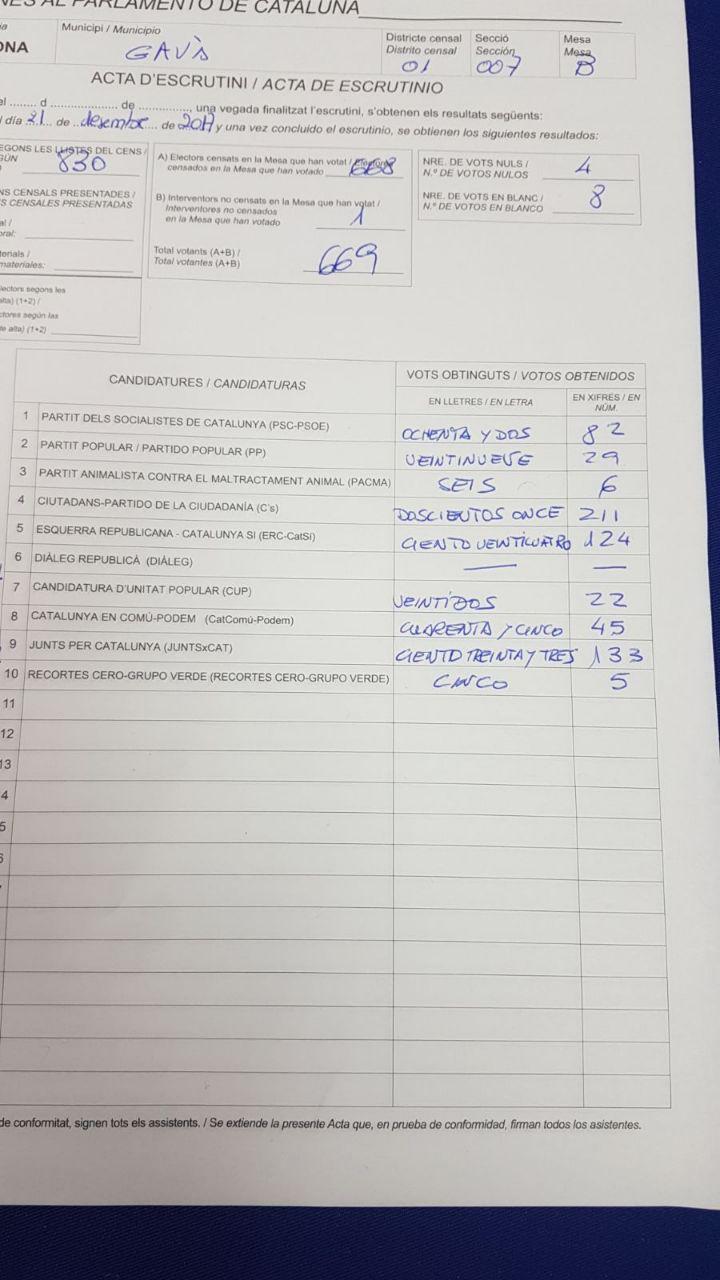 NES AL PARLAMENTO DE CATALUÑA
ONA
Municipi / Municipio
GAVÀ
Districte censal
Distrito censal
01
Secció
Sección
007
Mesa
Mesa
B
ACTA D'ESCRUTINI / ACTA DE ESCRUTINIO
el ........ d .................... de ..............., una vegada finalitzat l'escrutini, s'obtenen els resultats següents:
día 21 de desembre de 2017 y una vez concluido el escrutinio, se obtienen los siguientes resultados:
EGONS LES LLISTES DEL CENS /
GÚN
830
NS CENSALS PRESENTADES /
S CENSALES PRESENTADAS
al /
oral:
terials /
materiales:
lectors segons les
alta) (1+2) /
ctores según las
de alta) (1+2)
A) Electors censats en la Mesa que han votat / Electores
censados en la Mesa que han votado
668
B) Interventors no censats en la Mesa que han votat /
Interventores no censados
en la Mesa que han votado
1
Total votants (A+B) /
Total votantes (A+B)
669
NRE. DE VOTS NULS /
N.º DE VOTOS NULOS
4
NRE. DE VOTS EN BLANC /
N.º DE VOTOS EN BLANCO
8
CANDIDATURES / CANDIDATURAS
VOTS OBTINGUTS / VOTOS OBTENIDOS
EN LLETRES / EN LETRA
EN XIFRES / EN
NÚM.
1 PARTIT DELS SOCIALISTES DE CATALUNYA (PSC-PSOE) OCHENTA Y DOS 82
2 PARTIT POPULAR / PARTIDO POPULAR (PP) VEINTINUEVE 29
3 PARTIT ANIMALISTA CONTRA EL MALTRACTAMENT ANIMAL (PACMA) SEIS 6
4 CIUTADANS-PARTIDO DE LA CIUDADANÍA (C's) DOSCIENTOS ONCE 211
5 ESQUERRA REPUBLICANA - CATALUNYA SI (ERC-CatSí) CIENTO VEINTICUATRO 124
6 DIÀLEG REPUBLICÀ (DIÀLEG) — —
7 CANDIDATURA D'UNITAT POPULAR (CUP) VEINTIDOS 22
8 CATALUNYA EN COMÚ-PODEM (CatComú-Podem) CUARENTA Y CINCO 45
9 JUNTS PER CATALUNYA (JUNTSxCAT) CIENTO TREINTA Y TRES 133
10 RECORTES CERO-GRUPO VERDE (RECORTES CERO-GRUPO VERDE) CINCO 5
11
12
13
4
5
6
de conformitat, signen tots els assistents. / Se extiende la presente Acta que, en prueba de conformidad, firman todos los asistentes.